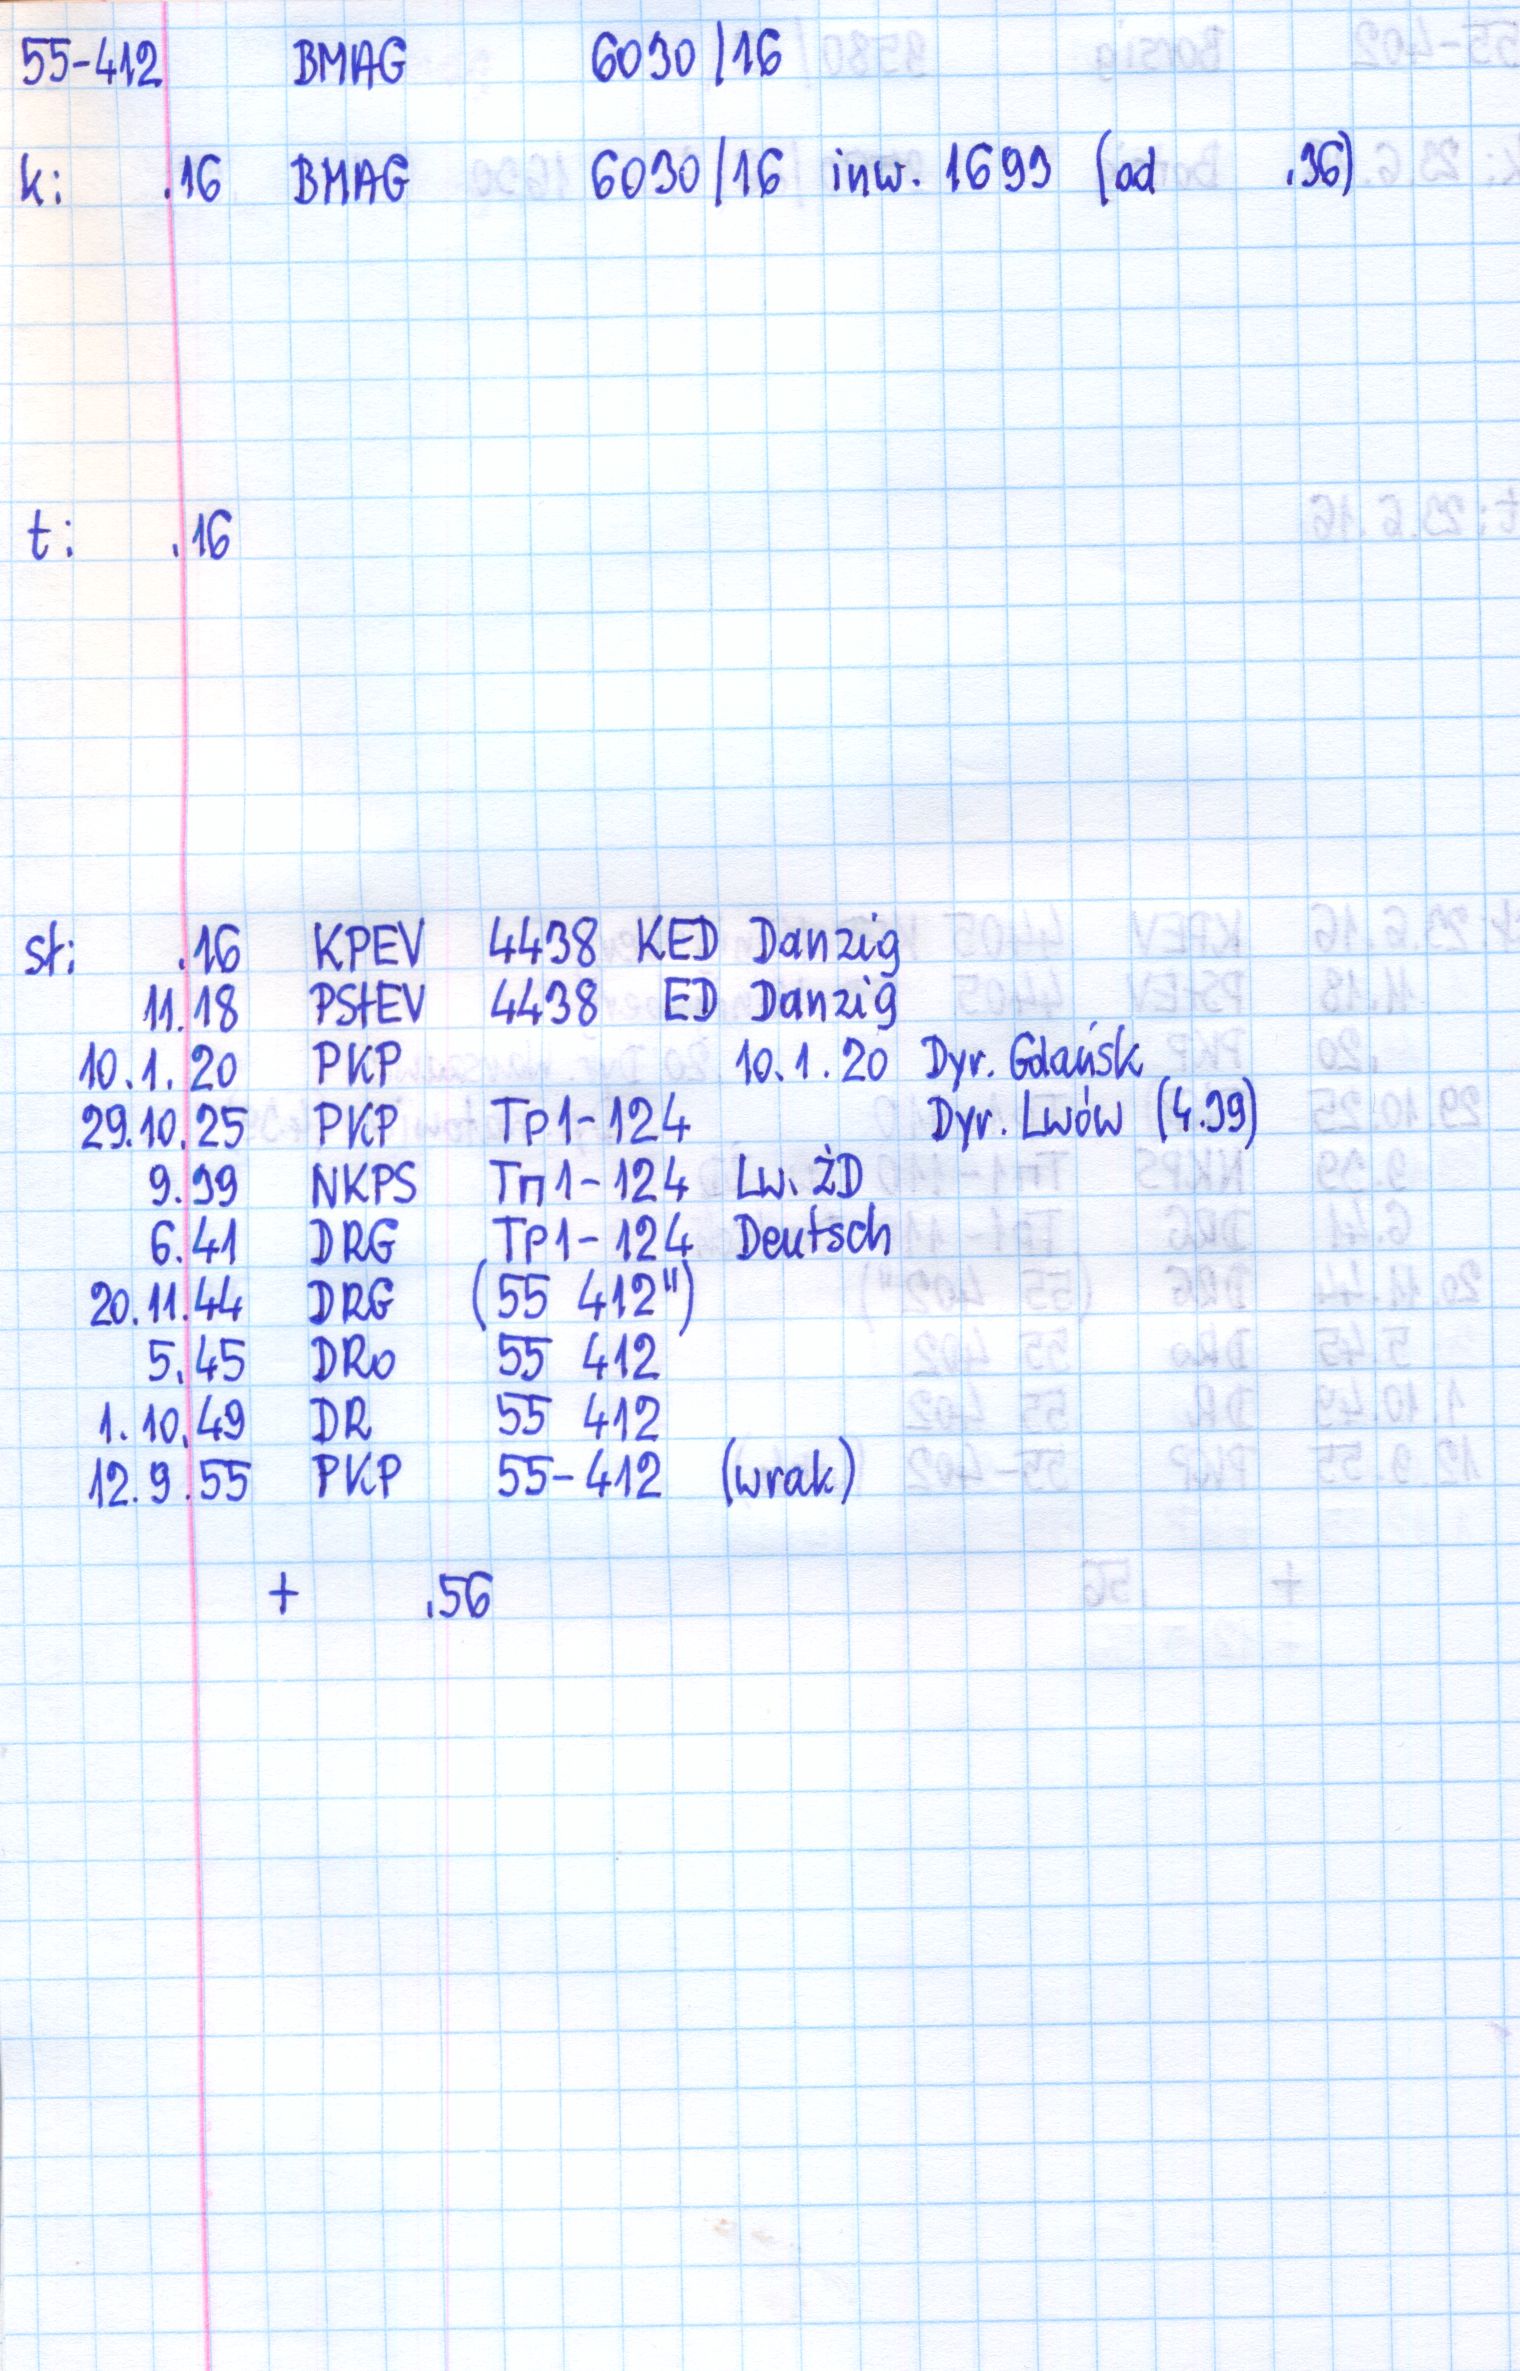 55-412 BMAG 6030/16
k: .16 BMAG 6030/16 inw. 1693 (od .36)
t: .16
st: .16 KPEV 4438 KED Danzig
11.18 PStEV 4438 ED Danzig
10.1.20 PKP 10.1.20 Dyr. Gdańsk
29.10.25 PKP Tp1-124 Dyr. Lwów (4.39)
9.39 NKPS Тп1-124 Lw. ŻD
6.41 DRG Tp1-124 Deutsch
20.11.44 DRG (55 412")
5.45 DRo 55 412
1.10.49 DR 55 412
12.9.55 PKP 55-412 (wrak)
+ .56